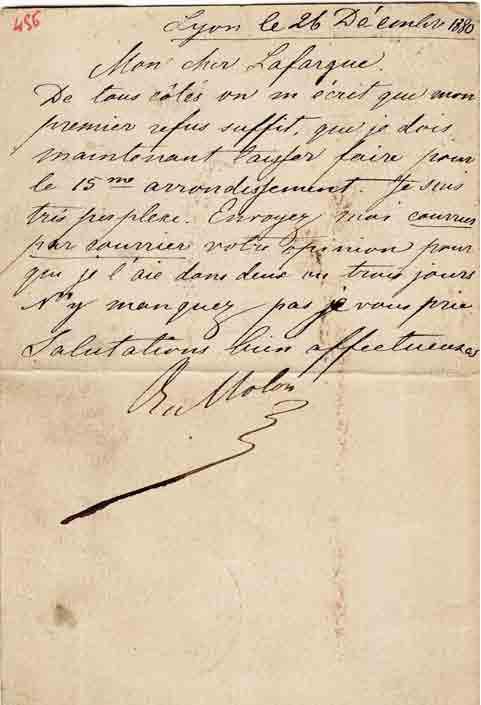 486
Lyon le 26 Décembre 1880
Mon cher Lafargue.
De tous côtés on m'écrit que mon
premier refus suffit, que je dois
maintenant laisser faire pour
le 15me arrondissement. Je suis
très perplexe. Envoyez moi courrier
par courrier votre opinion pour
que je l'aie dans deux ou trois jours
N'y manquez pas je vous prie
Salutations bien affectueuses
Malon